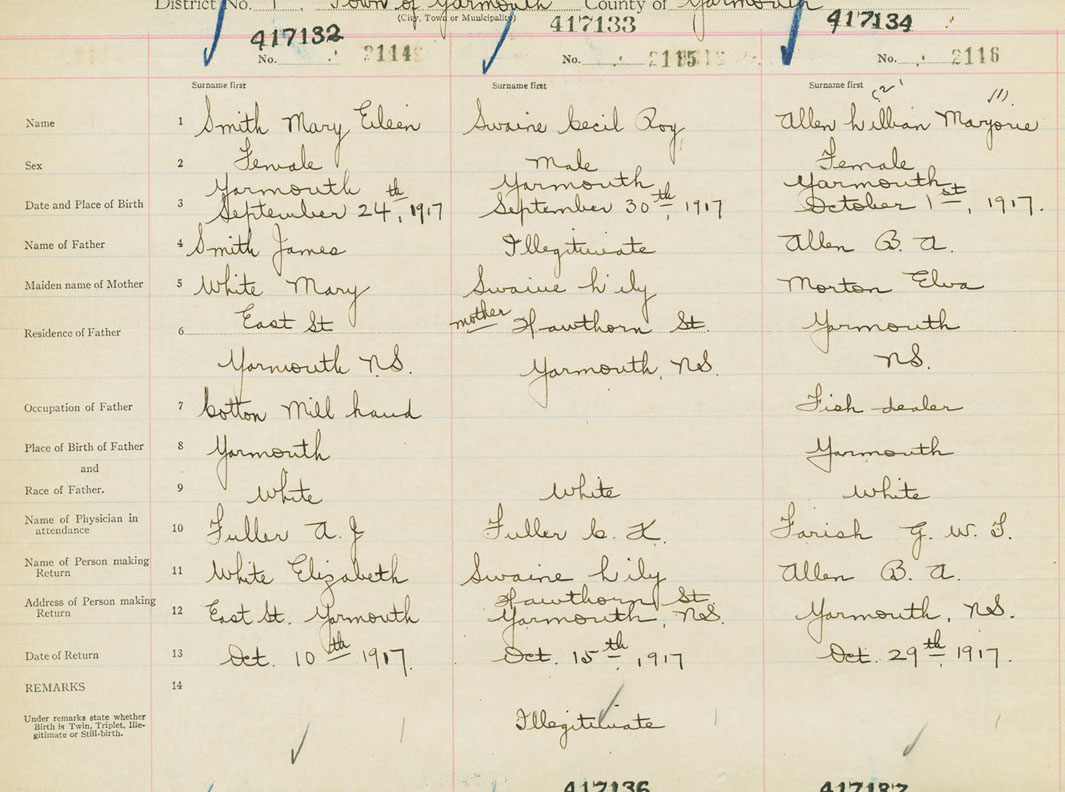 District No. 1, Town of Yarmouth County of Yarmouth
(City, Town or Municipality)
417132 417133 417134
No. 2114 No. 2115 No. 2116
Surname first Surname first Surname first
(2) (1)
Name 1 Smith Mary Eileen Swaine Cecil Roy Allen Lillian Marjorie
Sex 2 Female Male Female
Yarmouth Yarmouth Yarmouth
Date and Place of Birth 3 September 24th, 1917 September 30th, 1917 October 1st, 1917.
Name of Father 4 Smith James Illegitimate Allen B. A.
Maiden name of Mother 5 White Mary Swaine Lily Morton Elva
Residence of Father 6 East St mother Hawthorn St. Yarmouth
Yarmouth N.S. Yarmouth, N.S. N.S.
Occupation of Father 7 Cotton Mill hand Fish dealer
Place of Birth of Father 8 Yarmouth Yarmouth
and
Race of Father. 9 White White White
Name of Physician in attendance 10 Fuller A. J Fuller L. X. Farish G. W. T.
Name of Person making Return 11 White Elizabeth Swaine Lily Allen B. A.
Hawthorn St
Address of Person making Return 12 East St. Yarmouth Yarmouth, N.S. Yarmouth, N.S.
Date of Return 13 Oct. 10th 1917. Oct. 15th, 1917 Oct. 29th, 1917.
REMARKS 14
Under remarks state whether
Birth is Twin, Triplet, Ille-
gitimate or Still-birth.
Illegitimate
417136 417137